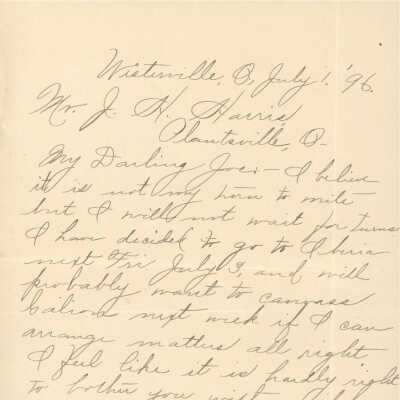 Westerville, O, July 1. '96.
Mr. J. H. Harris,
Plantsville, O-
My Darling Joe:- I believe
it is not my turn to write
but I will not wait for turns
I have decided to go to Iberia
next Fri July 3, and will
probably want to canvass
Galion next week if I can
arrange matters all right
I feel like it is hardly right
to bother you with